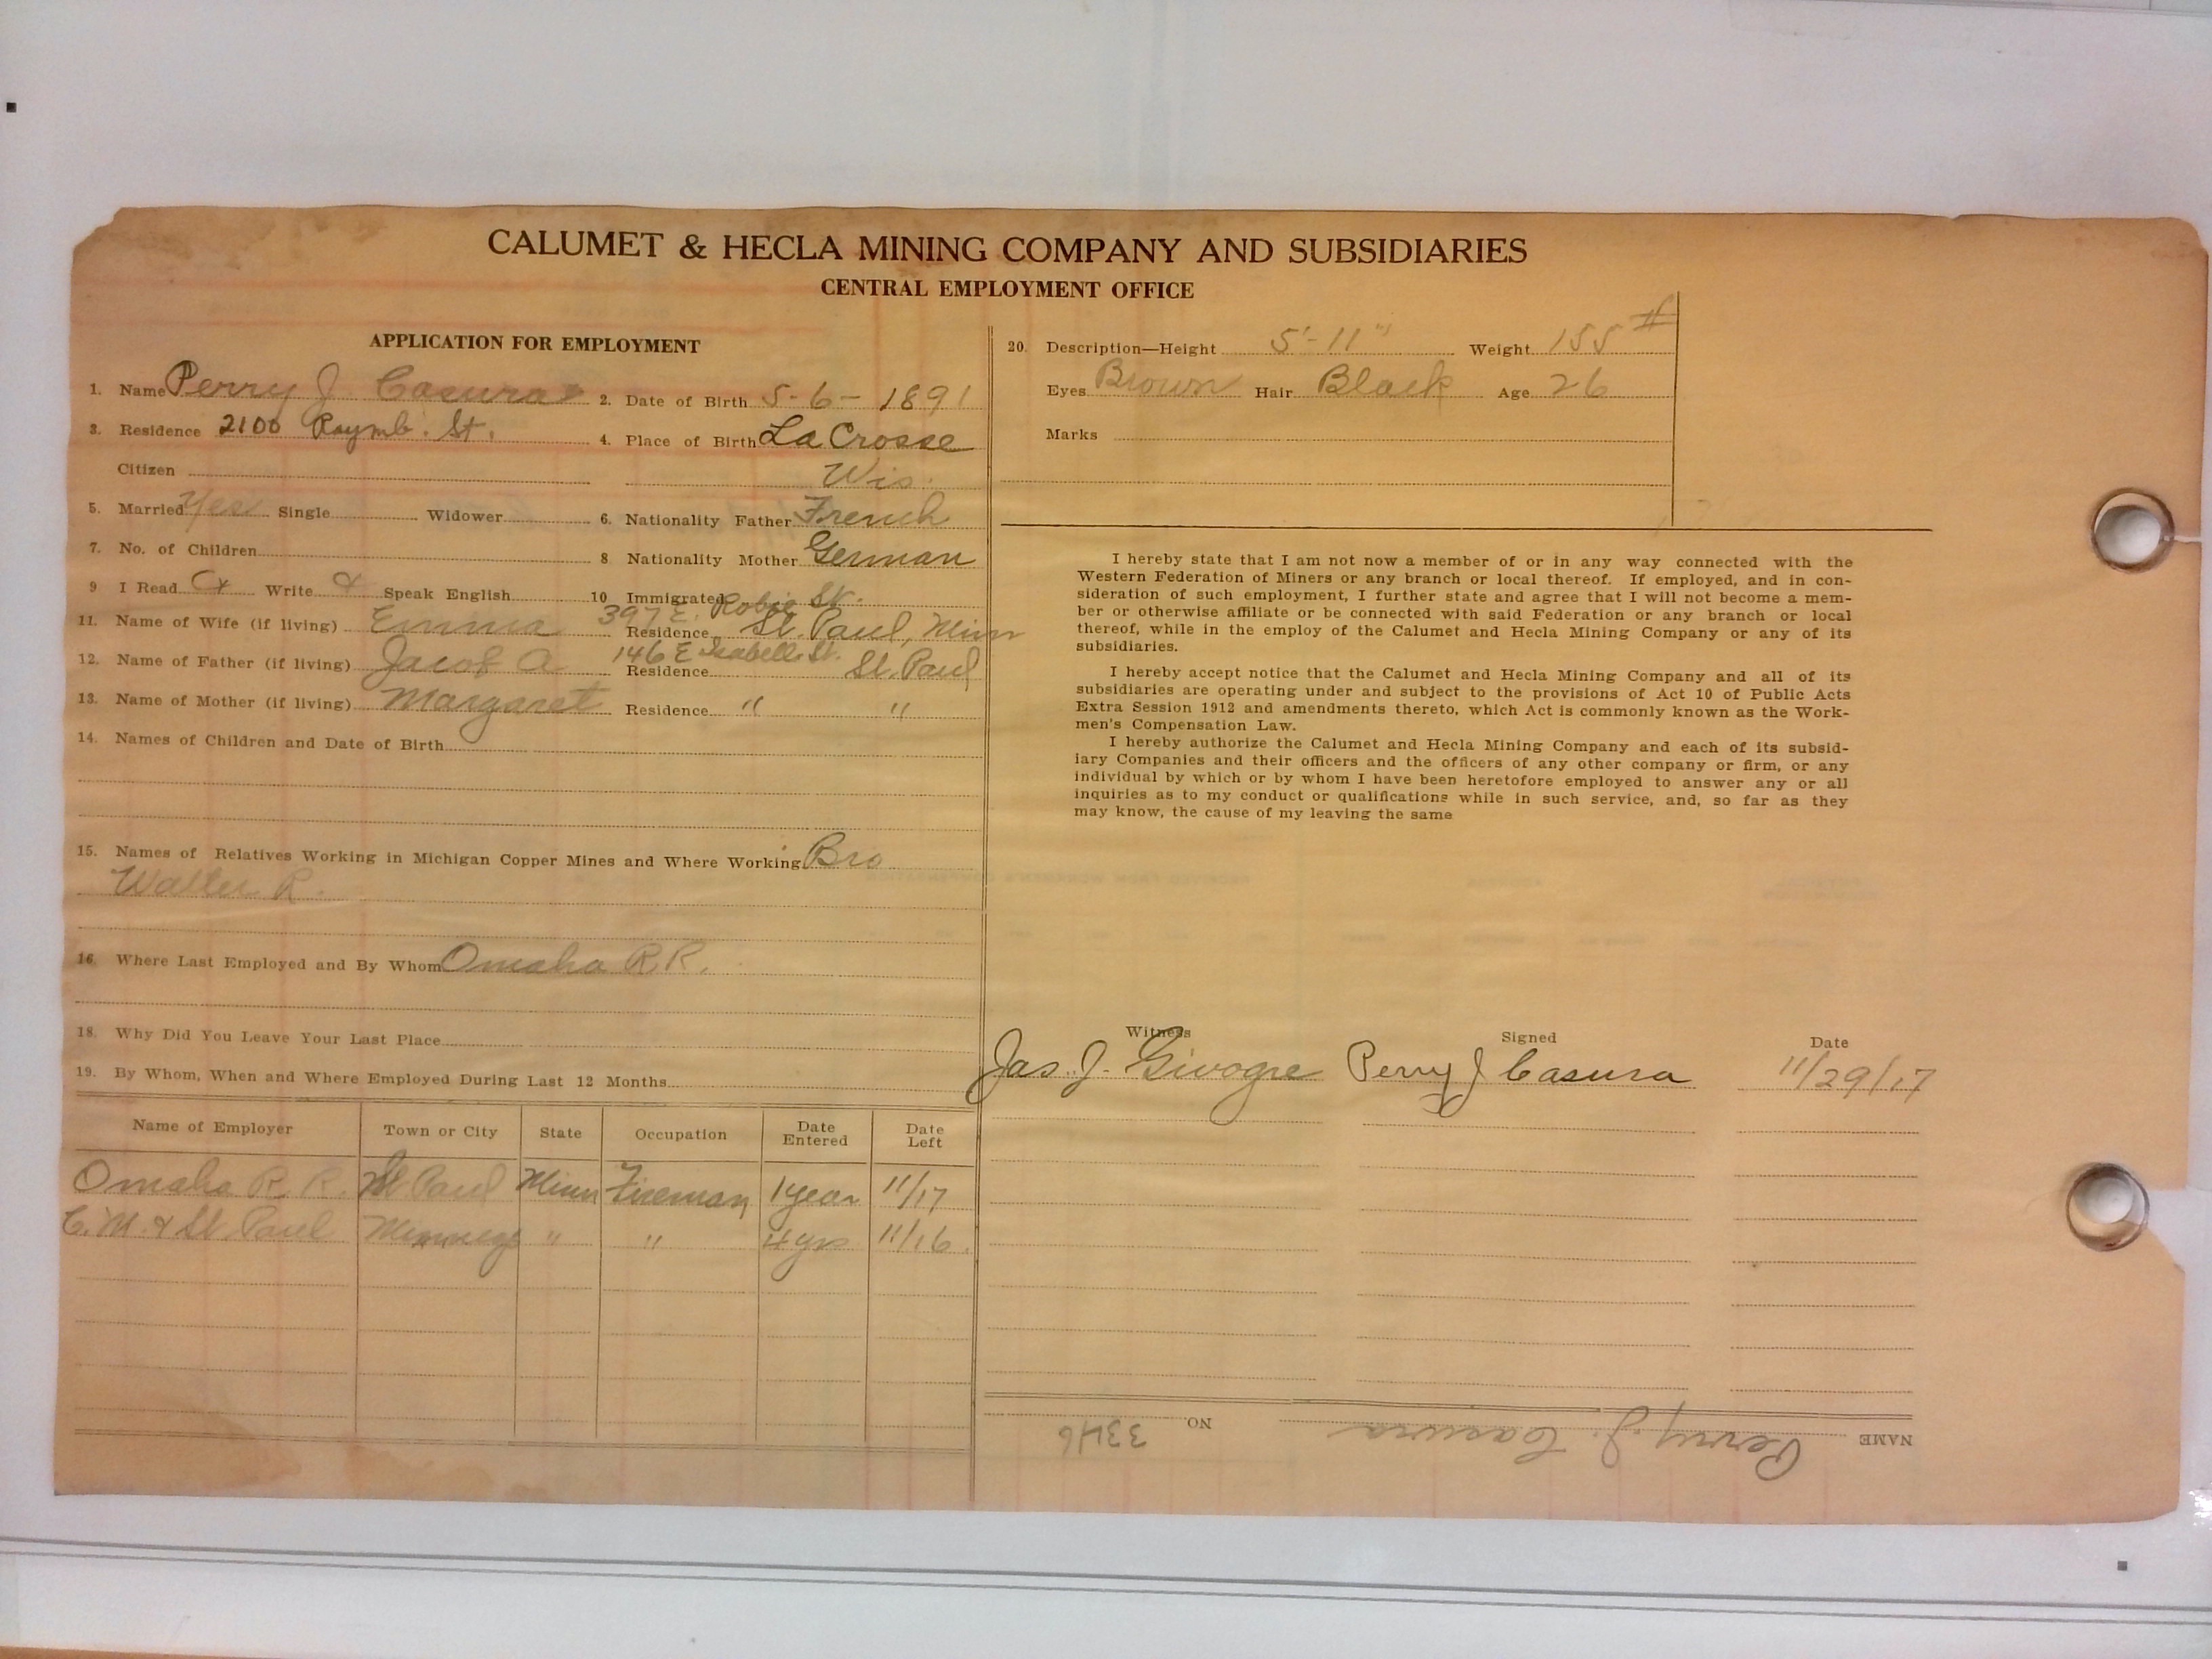 CALUMET & HECLA MINING COMPANY AND SUBSIDIARIES
CENTRAL EMPLOYMENT OFFICE
APPLICATION FOR EMPLOYMENT
1. Name Perry J. Casura 2. Date of Birth 5-6-1891
3. Residence 2100 Raymb. St. 4. Place of Birth La Crosse
Citizen Wis.
5. Married Yes Single Widower 6. Nationality Father French
7. No. of Children 8 Nationality Mother German
9 I Read Write Speak English 10 Immigrated
397 E. Robie St.
11. Name of Wife (if living) Emma Residence St. Paul, Minn
146 E Isabelle St.
12. Name of Father (if living) Jacob A. Residence St. Paul
13. Name of Mother (if living) Margaret Residence " "
14. Names of Children and Date of Birth
15. Names of Relatives Working in Michigan Copper Mines and Where Working Bro
Walter R.
16. Where Last Employed and By Whom Omaha R.R.
18. Why Did You Leave Your Last Place
19. By Whom, When and Where Employed During Last 12 Months
Name of Employer Town or City State Occupation Date Entered Date Left
Omaha R. R. St Paul Minn Fireman 1 year 11/17
C. M. & St. Paul " " 4 yrs 11/16.
20. Description—Height 5'-11" Weight 155 #
Eyes Brown Hair Black Age 26
Marks
I hereby state that I am not now a member of or in any way connected with the
Western Federation of Miners or any branch or local thereof. If employed, and in con-
sideration of such employment, I further state and agree that I will not become a mem-
ber or otherwise affiliate or be connected with said Federation or any branch or local
thereof, while in the employ of the Calumet and Hecla Mining Company or any of its
subsidiaries.
I hereby accept notice that the Calumet and Hecla Mining Company and all of its
subsidiaries are operating under and subject to the provisions of Act 10 of Public Acts
Extra Session 1912 and amendments thereto, which Act is commonly known as the Work-
men's Compensation Law.
I hereby authorize the Calumet and Hecla Mining Company and each of its subsid-
iary Companies and their officers and the officers of any other company or firm, or any
individual by which or by whom I have been heretofore employed to answer any or all
inquiries as to my conduct or qualifications while in such service, and, so far as they
may know, the cause of my leaving the same
Witness Signed Date
Jas. J. Givogre Perry J Casura 11/29/17
NAME Perry J. Casura NO 3346